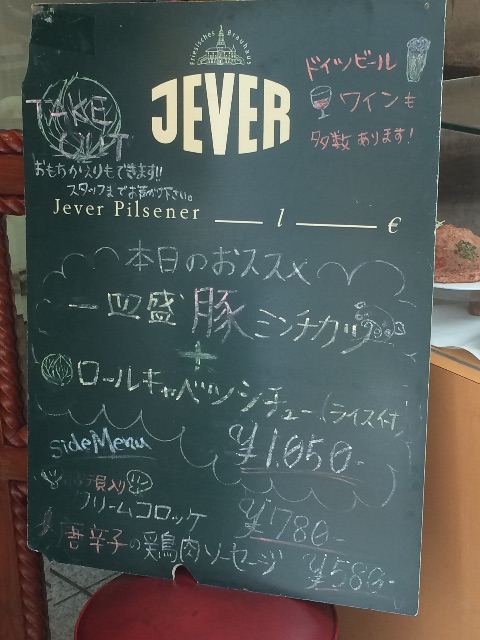 Friesisches Brauhaus
JEVER
ドイツビール
ワインも
多数あります!
TAKE
OUT
おもちかえりもできます!!
スタッフまでお声がけ下さい。
Jever Pilsener ____ l ____ €
本日のおススメ
一皿盛 豚ミンチカツ
+
ロールキャベツシチュー(ライス付)
¥1,050-
side Menu
入り
クリームコロッケ ¥780-
唐辛子の鶏肉ソーセージ ¥580-